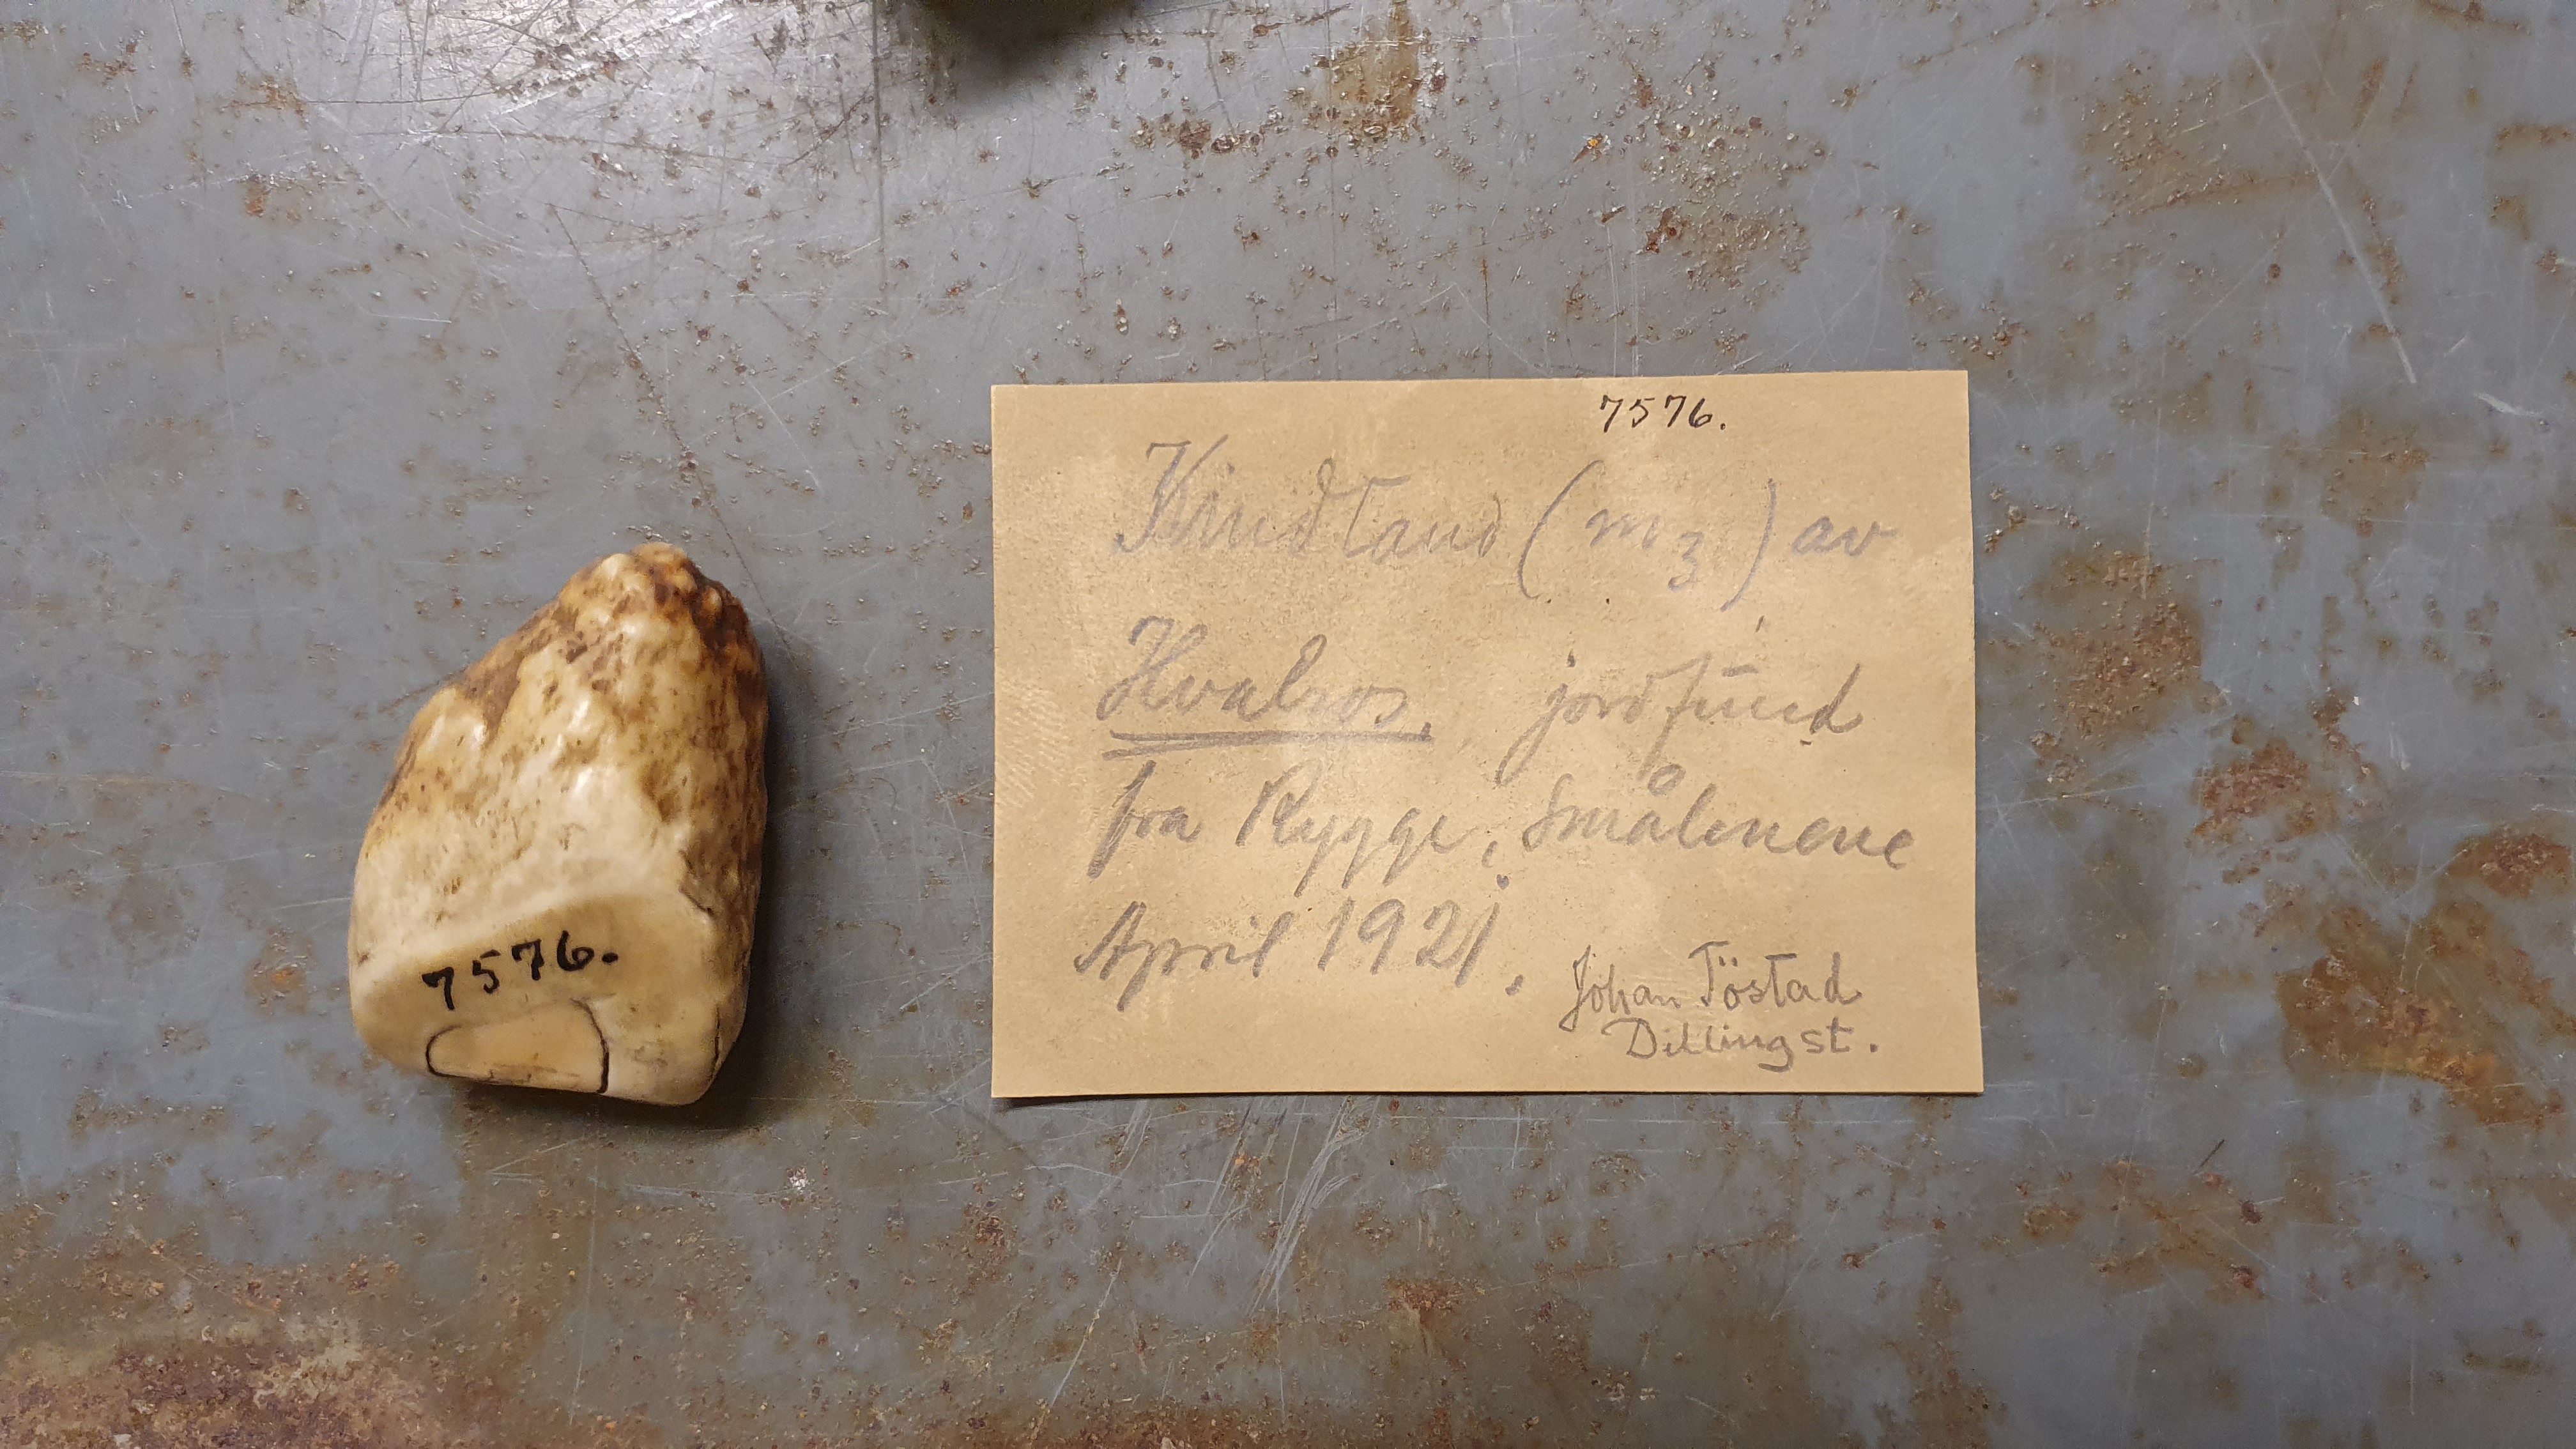 7576.
7576.
Kindtand (m3) av
Hvalros, jordfund
fra Rygge, Smålenene
April 1921.
Johan Töstad
Dilling st.